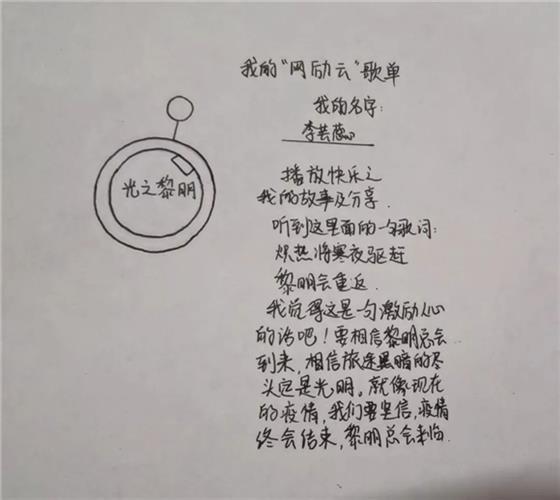 我的“网励云”歌单
我的名字:
李芸蕊
光之黎明
播放快乐之
我的故事及分享.
听到这里面的一句歌词:
炽热将寒夜驱赶
黎明会重返.
我觉得这是一句激励人心
的话吧!要相信黎明总会
到来,相信旅途黑暗的尽
头定是光明。就像现在
的疫情,我们要坚信,疫情
终会结束,黎明总会来临.